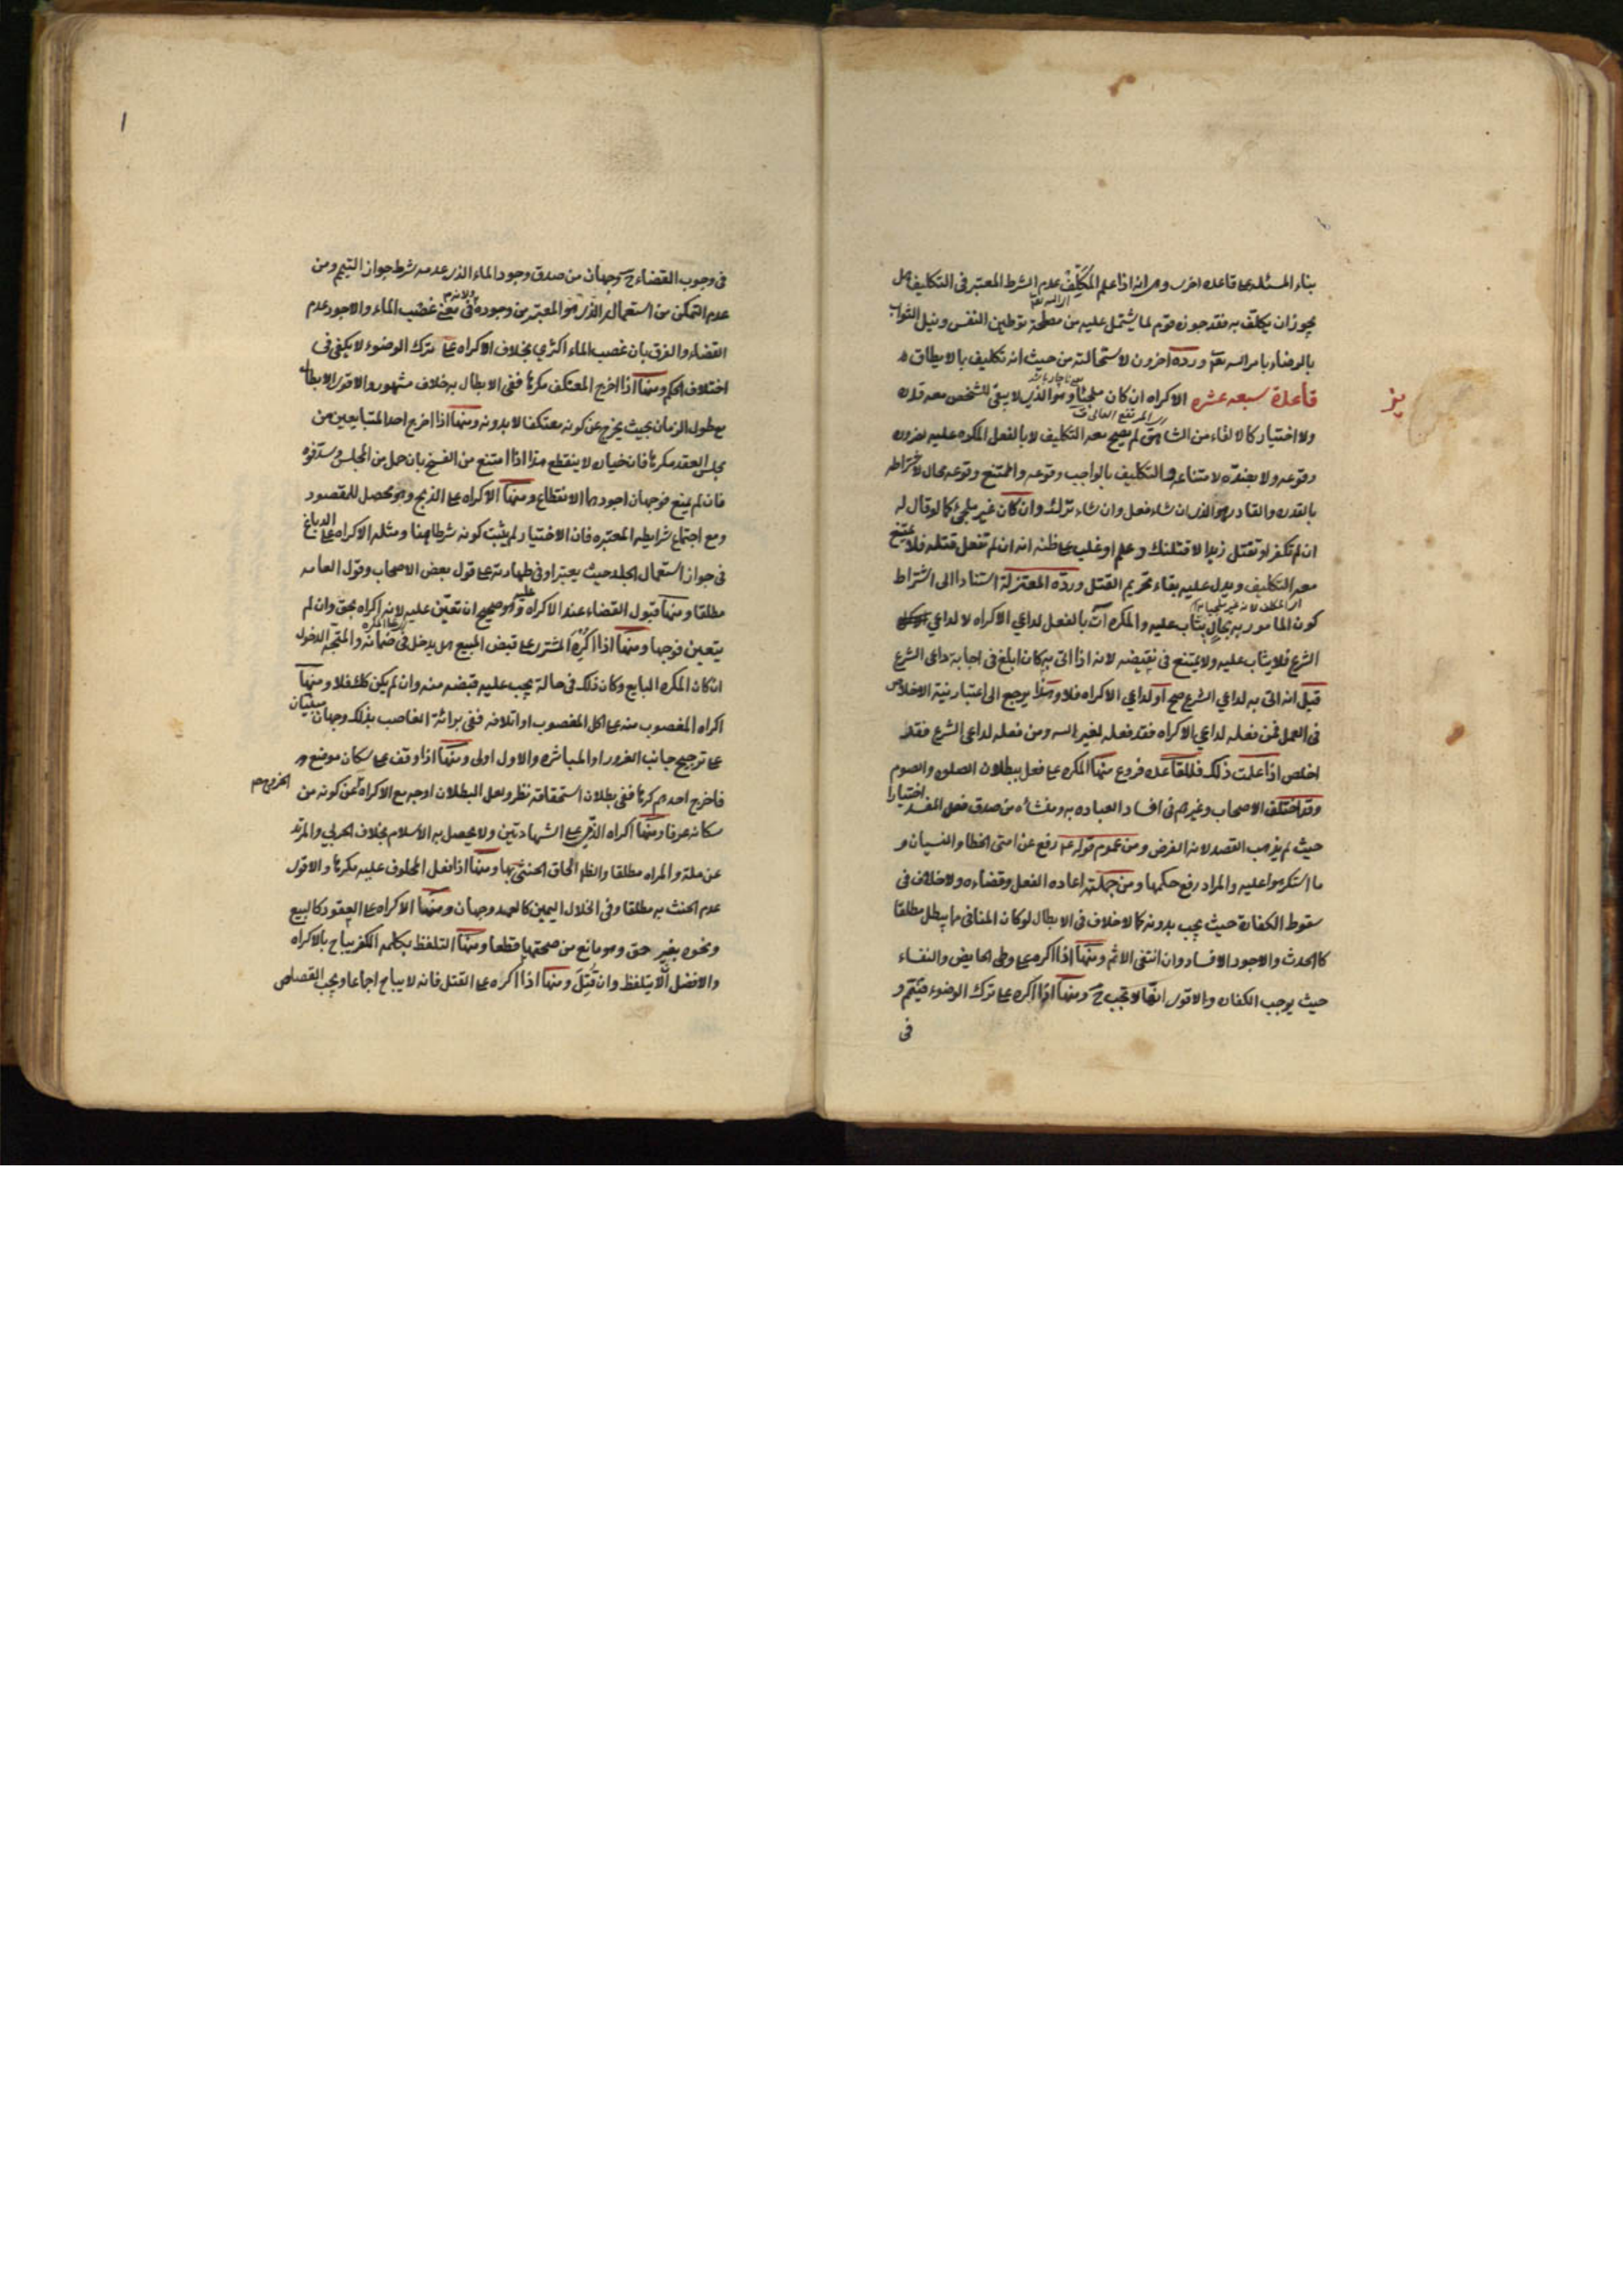 بناء المسئله على قاعده اخرى وهي انه اذا علم المكلِّف عدم الشرط المعتبر فى التكليف هل
الله تعالى
يجوز ان يكلّف به فقد جوزه قوم لما يشتمل عليه من مصلحة توطين النفس ونيل الثواب
بالرضاء بامر الله تعالى وردّه اخرون لاستحالته من حيث انه تكليف بما لا يطاق
يز
قاعدة سبعه عشره الاكراه ان كان ملجئا وهو الذى لا يبقى للشخص معه قدره
ولا اختيار كالالقاء من الشاهق لم يصح معه التكليف لا بالفعل المكره عليه لضروره
وقوعه ولا بضدّه لامتناعه والتكليف بالواجب وقوعه والممتنع وقوعه محال لاشتراطه
بالقدره والقادر هو الذى ان شاء فعل وان شاء ترك وان كان غير ملجئ كما لو قال له
ان لم تكفر او تقتل زيدا لاقتلنك وعلم او غلب على ظنه انه ان لم تفعل قتله فلا يمتنع
معه التكليف ويدل عليه بقاء تحريم القتل وردّه المعتزلة استنادا الى اشتراط
كون المامور به بحال يثاب عليه والمكره آت بالفعل لداعي الاكراه لا لداعي
الشرع فلا يثاب عليه ولا يمتنع فى نقيضه لانه اذا اتى به كان ابلغ فى اجابة داعى الشرع
قيل انه اتى به لداعي الشرع صح او لداعي الاكراه فلا وهذا يرجع الى اعتبار نية الاخلاص
فى العمل فمن فعله لداعي الاكراه فقد فعله لغير الله ومن فعله لداعى الشرع فقد
اخلص اذا علمت ذلك فللقاعده فروع منها المكره على فعل يبطلان الصلوه والصوم
وقد اختلف الاصحاب وغيرهم فى افساد العباده به ومنشاه من صدق فعل المفسد اختيارا
حيث لم يذهب القصد لانه الفرض ومن عموم قوله عم رفع عن امتى الخطا والنسيان و
ما استكرهوا عليه والمراد رفع حكمها ومن جملته اعاده الفعل وقضاءه ولا خلاف فى
سقوط الكفارة حيث يجب بدونه كما لا خلاف فى الابطال لو كان المنافى مما يبطل مطلقا
كالحدث والاجود الافساد وان انتفى الاثم ومنها اذا اكره على وطى الحايض والنفساء
حيث يوجب الكفاره والاقوى انها لا تجب ح ومنها اذا اكره على ترك الوضوء فتيمّم و
فى
ا
فى وجوب القضاء ح وجهان من صدق وجود الماء الذى عدمه شرط جواز التيمم ومن
عدم التمكن من استعماله الذى هو المعتبر من وجوده ولانه فى معنى غصب الماء والاجود عدم
القضاء والفرق بان غصب الماء اكثري بخلاف الاكراه على ترك الوضوء لا يكفى فى
اختلاف الحكم ومنها اذا اخرج المعتكف مكرها ففى الابطال به خلاف مشهور والاقوى الابطال
مع طول الزمان بحيث يخرج عن كونه معتكفا لا بدونه ومنها اذا اخرج احد المتبايعين من
مجلس العقد مكرها فان خياره لا ينقطع هذا اذا امتنع من الفسخ بان حمل من المجلس وسد فوه
فان لم يمنع فوجهان اجودهما الانقطاع ومنها الاكراه على الذبح وهو محصل للمقصود
ومع اجتماع شرايطه المعتبره فان الاختيار لم يثبت كونه شرطا هنا ومثله الاكراه على الدباغ
فى جواز استعمال الجلد حيث يعتبر او فى طهارته على قول بعض الاصحاب وقول العامه
مطلقا ومنها قبول القضاء عند الاكراه عليه وهو صحيح ان تعيّن عليه لانه اكراه بحق وان لم
يتعين فوجها ومنها اذا اكره المشترى على قبض المبيع هل يدخل فى ضمانه والمتجّه الدخول
ان كان المكره البايع وكان ذلك فى حالة يجب عليه قبضه منه وان لم يكن كذلك فلا ومنها
اكراه المغصوب منه على اكل المغصوب او اتلافه ففى برائة الغاصب بذلك وجهان مبنيان
على ترجيح جانب الغرور او المباشره والاول اولى ومنها اذا وقف على سكان موضع
فاخرج احدهم كرها ففى بطلان استحقاقه نظر ولعل البطلان اوجه مع الاكراه الخروجه عن كونه من
سكانه عرفا ومنها اكراه الذّمى على الشهادتين ولا يحصل به الاسلام بخلاف الحربي والمرتد
عن ملة والمراه مطلقا والظ الحاق الخنثى بها ومنها اذا فعل المحلوف عليه مكرها والاقوى
عدم الحنث به مطلقا وفى انحلال اليمين كالعمد وجهان ومنها الاكراه على العقود كالبيع
ونحوه بغير حق وهو مانع من صحتها قطعا ومنها التلفظ بكلمه الكفر يباح بالاكراه
والافضل الّا يتلفظ وان قُتِلَ ومنها اذا اكره على القتل فانه لا يباح اجماعا ويجب القصاص